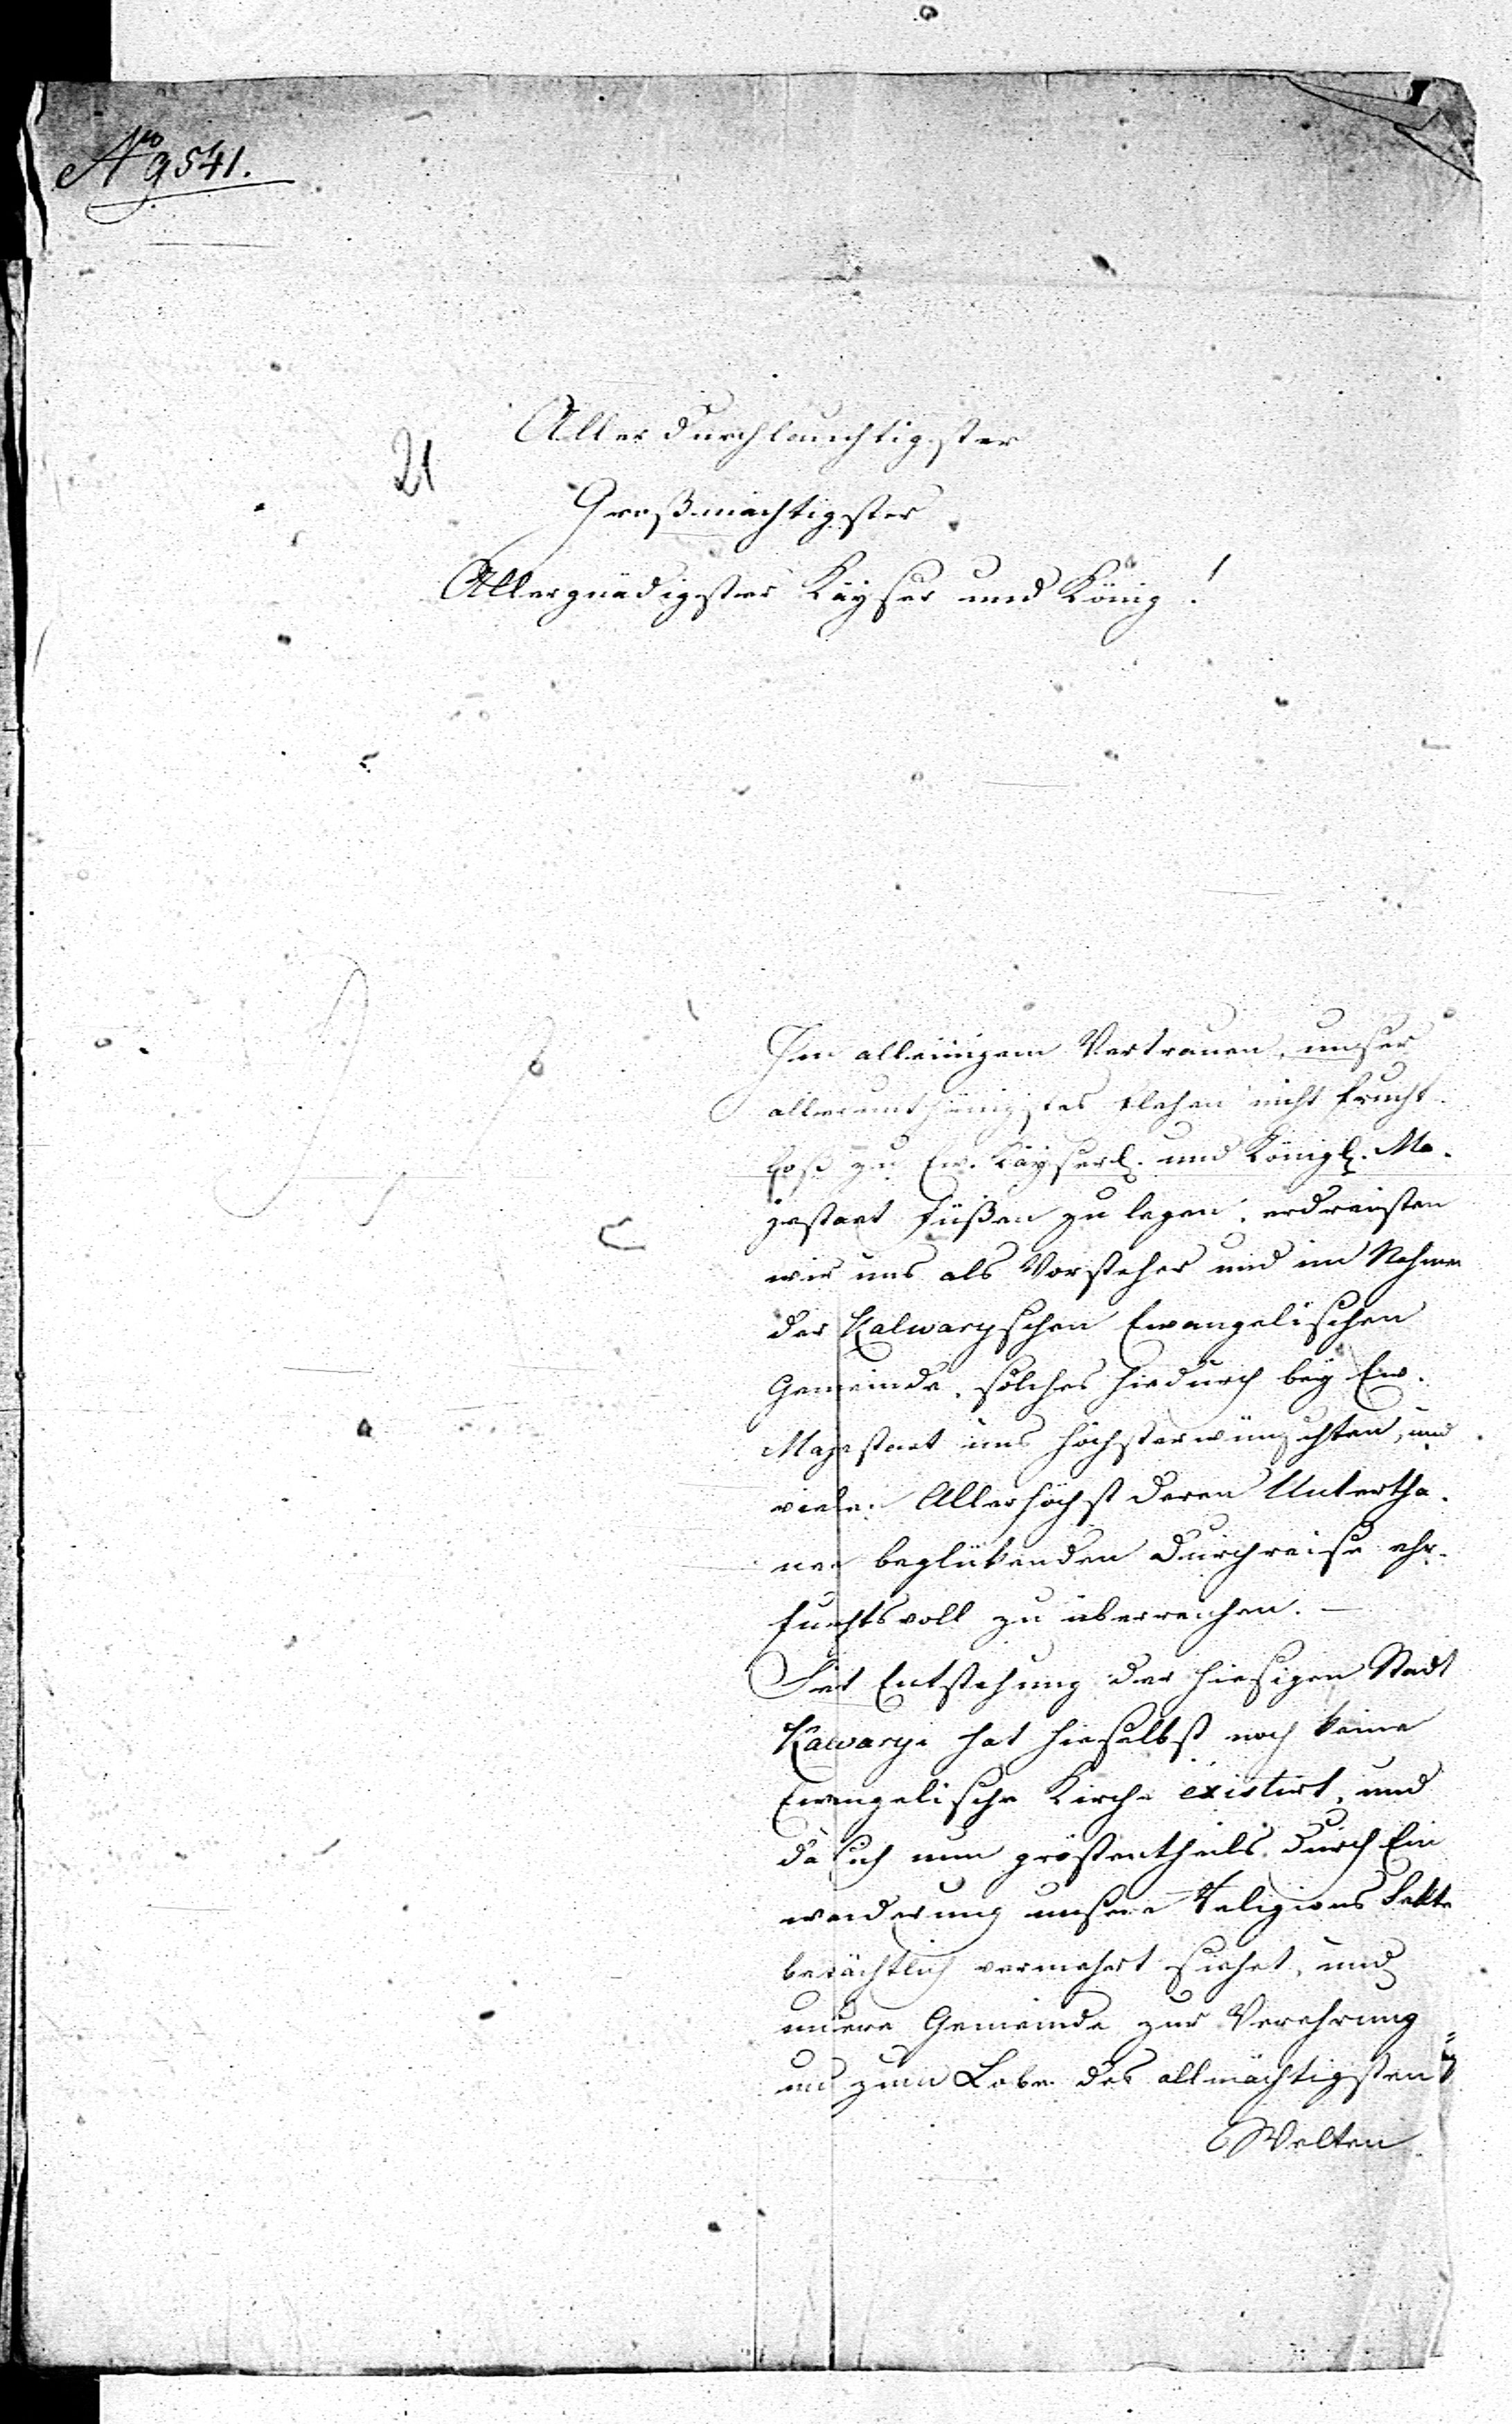 No 9541.
21
Allerdurchlauchtigster
Großmächtigster
Allergnädigster Kayser und König!
Im alleinigen Vertrauen, unser
allerunthänigstes Flehen nicht frucht-
loß zu Ew. Kayserl. und Königl. Ma-
jestaet Füßen zu legen, erdreisten
wir uns als Vorsteher und im Nahmen
der Kalwaryschen Ewangelischen
Gemeinde, solches hiedurch bey Ew.
Majestaet uns höchsterwünschten, und
viele Allerhöchst Deren Untertha-
nen beglükenden Durchreise ehr-
furchtsvoll zu überreichen. —
Seit Entstehung der hiesigen Stadt
Kawarye hat hieselbst noch keine
Ewangelische Kirche existirt, und
da sich nun gröstentheils durch Ein
wanderung unsere Religions Sekte
beträchtlich vermehrt siehet, und
unsere Gemeinde zur Verehrung
und zum Lobe des allmächtigsten
Welten